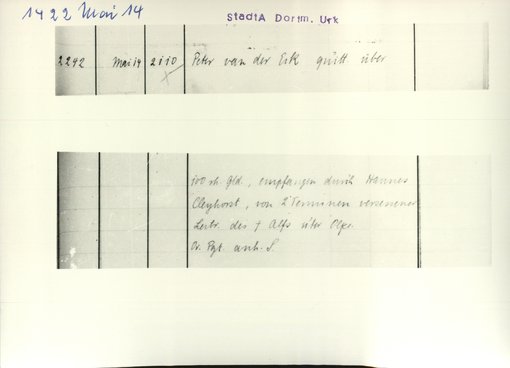 1422 Mai 14
StadtA Dortm. Urk
2242 Mai 14 2110 Peter van der Eck quitt über
100 rh. Gld., empfangen durch Hannes
Cleyhorst, von 2 Terminen versessener
Leibr. des † Alfs
Or. Pgt. anh. S.